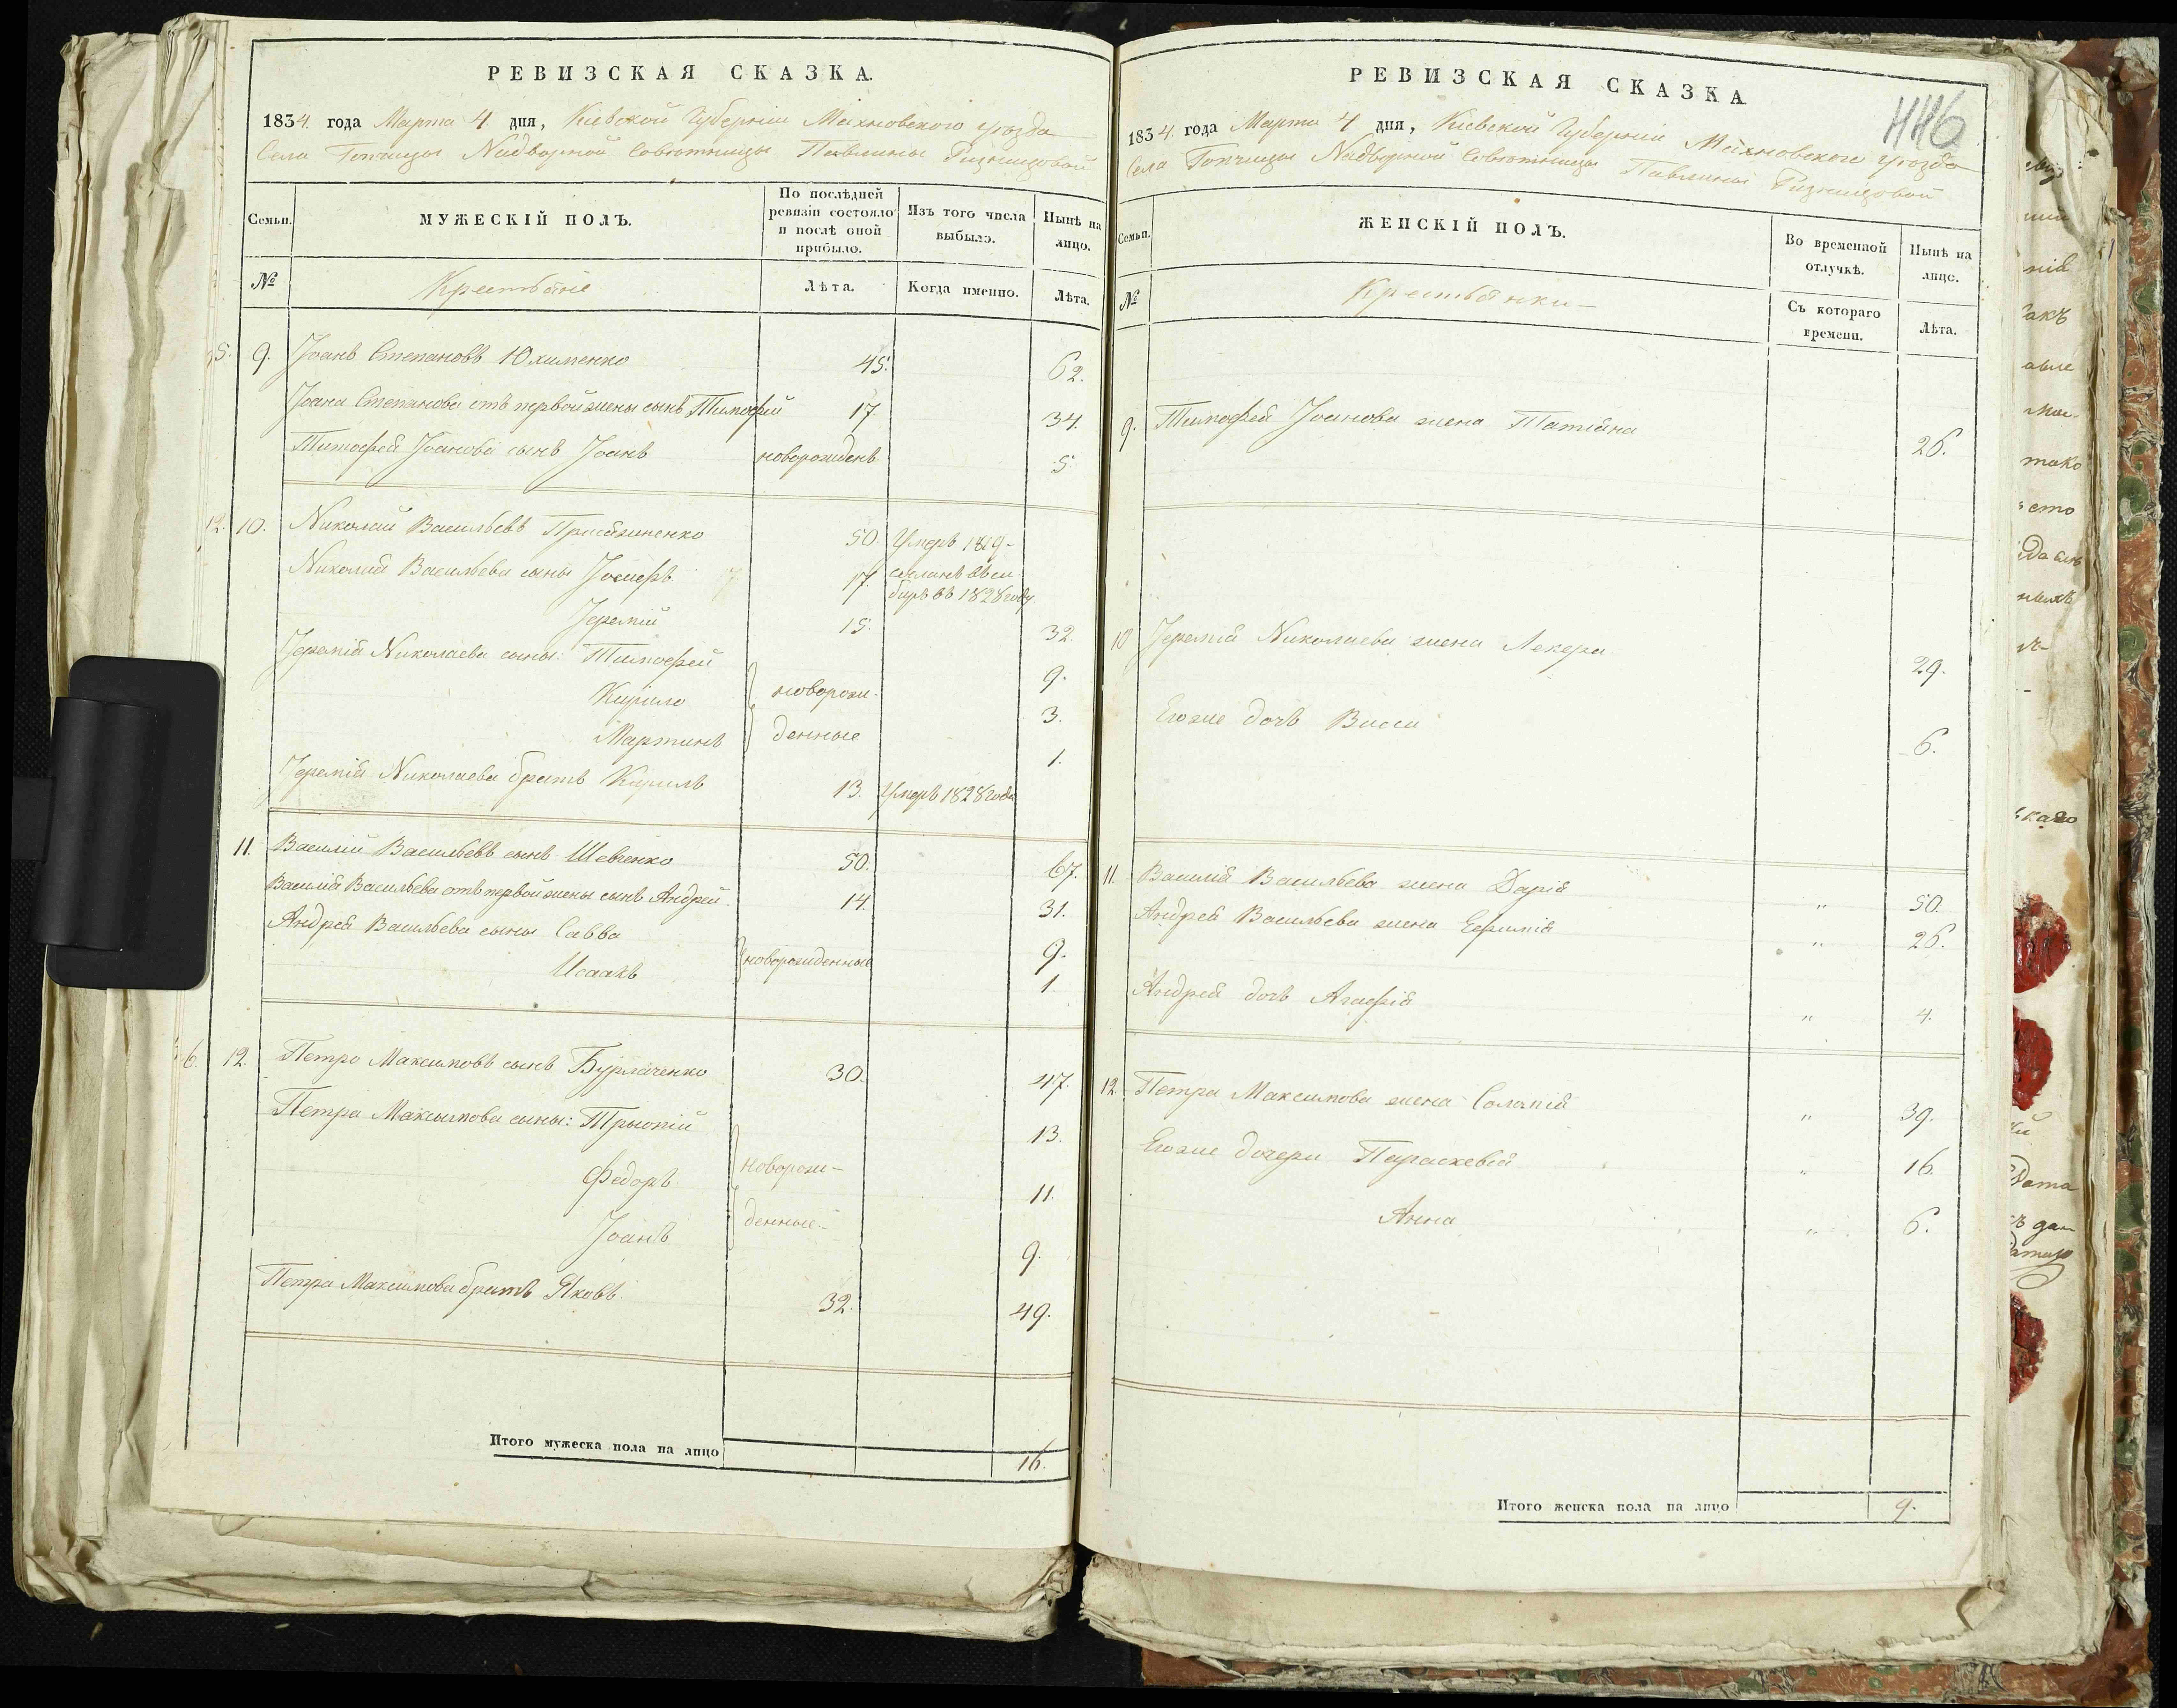 РЕВИЗСКАЯ СКАЗКА.
1834. года Марта 4 дня, Кіевской Губерніи Махновского уѣзда
Села Топчищы Надворной Совѣтницы Павлины
МУЖЕСКІЙ ПОЛЪ.
Семьи.
По послѣдней
ревизіи состояло
и послѣ оной
прибыло.
Изъ того числа
выбыло.
Нынѣ на
лицо.
№
Крестьяне
Лѣта.
Когда именно.
Лѣта.
5. 9. Іоанъ Степановъ Юхименко 45. 62.
Іоана Степанова отъ первой жены сынъ Тимофей 17. 34.
Тимофея Іоанова сынъ Іоанъ новорожденъ 5
12. 10. Николай Васильевъ 50. Умеръ 1819-
Николая Васильева сыны Іосифъ. 17. сосланъ въ си-
биръ въ 1828 году
Іеремій 15. 32.
Іеремія Николаева сыны: Тимофей 9.
Кирило новорож- 3.
Мартинъ денные 1.
Іеремія Николаева братъ Кирилъ 13. Умеръ 1828 года
11. Василій Васильевъ сынъ Шевченко 50. 67.
Василія Васильева отъ первой жены сынъ Андрей. 14. 31.
Андрея Васильева сыны Савва 9.
новорожденные
Исаакъ 1.
6. 12. Петро Максимовъ сынъ Бурлаченко 30. 47.
Петра Максымова сыны: Трыфній 13.
Федоръ новорож- 11.
Іоанъ денные.- 9.
Петра Максимова братъ Яковъ. 32. 49.
Итого мужеска пола на лицо 16.
РЕВИЗСКАЯ СКАЗКА.
446
1834. года Марта 4 дня, Кіевской Губерніи Махновского уѣзда
Села Топчищы Надворной Совѣтницы Павлины
Семьи.
ЖЕНСКІЙ ПОЛЪ.
Во временной
отлучкѣ.
Нынѣ на
лицо.
№
Крестьянки
Съ котораго
времени.
Лѣта.
9. Тимофея Іоанова жена Татіана 26.
10 Іеремія Николаева жена Лекера 29.
Егоже дочь Васса 6.
11. Василія Васильева жена Дарія " 50.
Андрея Васильева жена Ефимія " 26.
Андрея дочь Агафія " 4.
12. Петра Максимова жена Соломія " 39.
Егоже дочери Параскевія " 16
Анна " 6.
Итого женска пола на лицо 9.